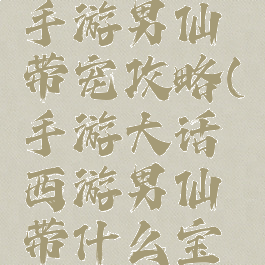 手游男仙
带宠攻略(
手游大话
西游男仙
带什么宝